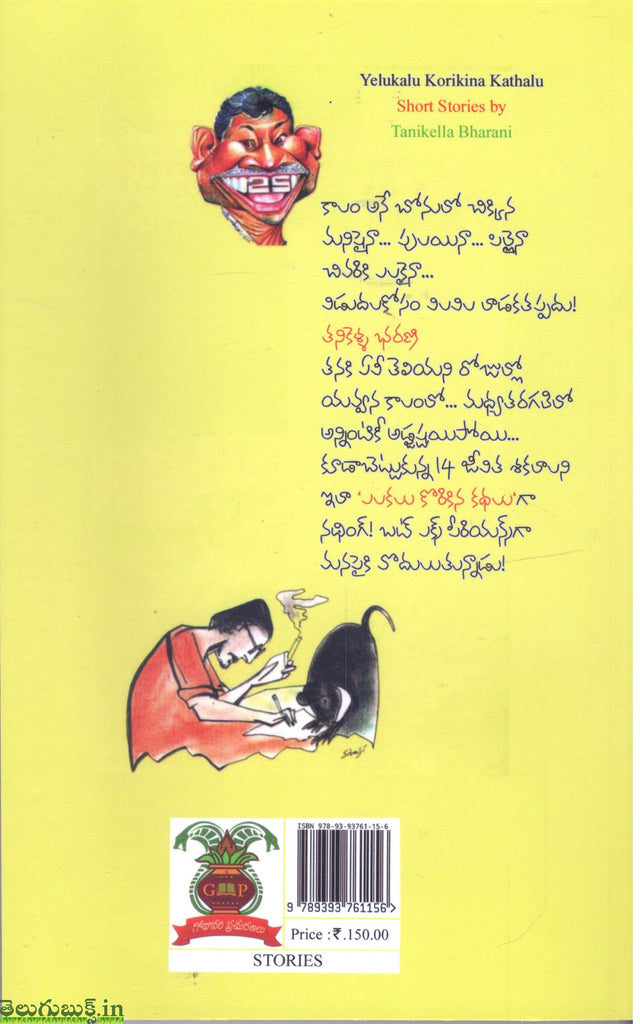 Yelukalu Korikina Kathalu
Short Stories by
Tanikella Bharani
కాలం అనే బోనులో చిక్కిన
మనిషైనా... పులయినా... పిల్లైనా
చివరికి ఎలుకైనా...
విడుదలకోసం విలవిల లాడకతప్పదు!
తనికెళ్ళ భరణి
తనకి ఏమీ తెలియని రోజుల్లో
యవ్వన కాలంలో... మధ్యతరగతిలో
అన్నింటికీ అడ్జస్టయిపోయి...
కూడాబెట్టుకున్న 14 జీవిత శకలాలని
ఇలా 'ఎలుకలు కొరికిన కథలు'గా
నథింగ్! బట్ ఎక్స్ పీరియన్స్‌గా
మనపైకి వొదులుతున్నాడు!
ISBN 978-93-93761-15-6
9 789393 761156 >
G P
గోదావరి ప్రచురణలు
Price : ₹.150.00
STORIES
తెలుగుబుక్స్.in